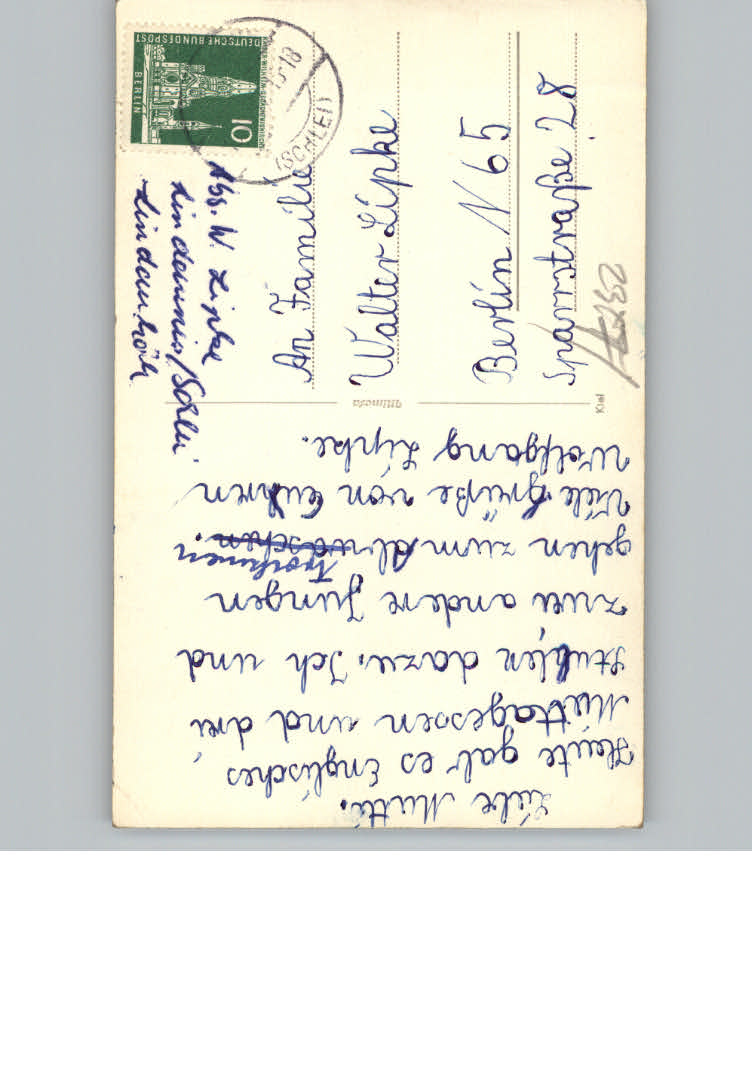 Liebe Mutti.
Heute gab es Englisches
Mittagessen und drei
Stullen dazu. Ich und
zwei andere Jungen
gehen zum Abwaschen.
Trocknen
Viele Grüße von Euren
Wolfgang Lipke.
Abs. W. Lipke
Lindaunis/Schlei
DEUTSCHE BUNDESPOST
BERLIN
10
(SCHLEI)
An Familie
Walter Lipke
Berlin N 65
Sparrstraße 28
Ultmosta
Kiel